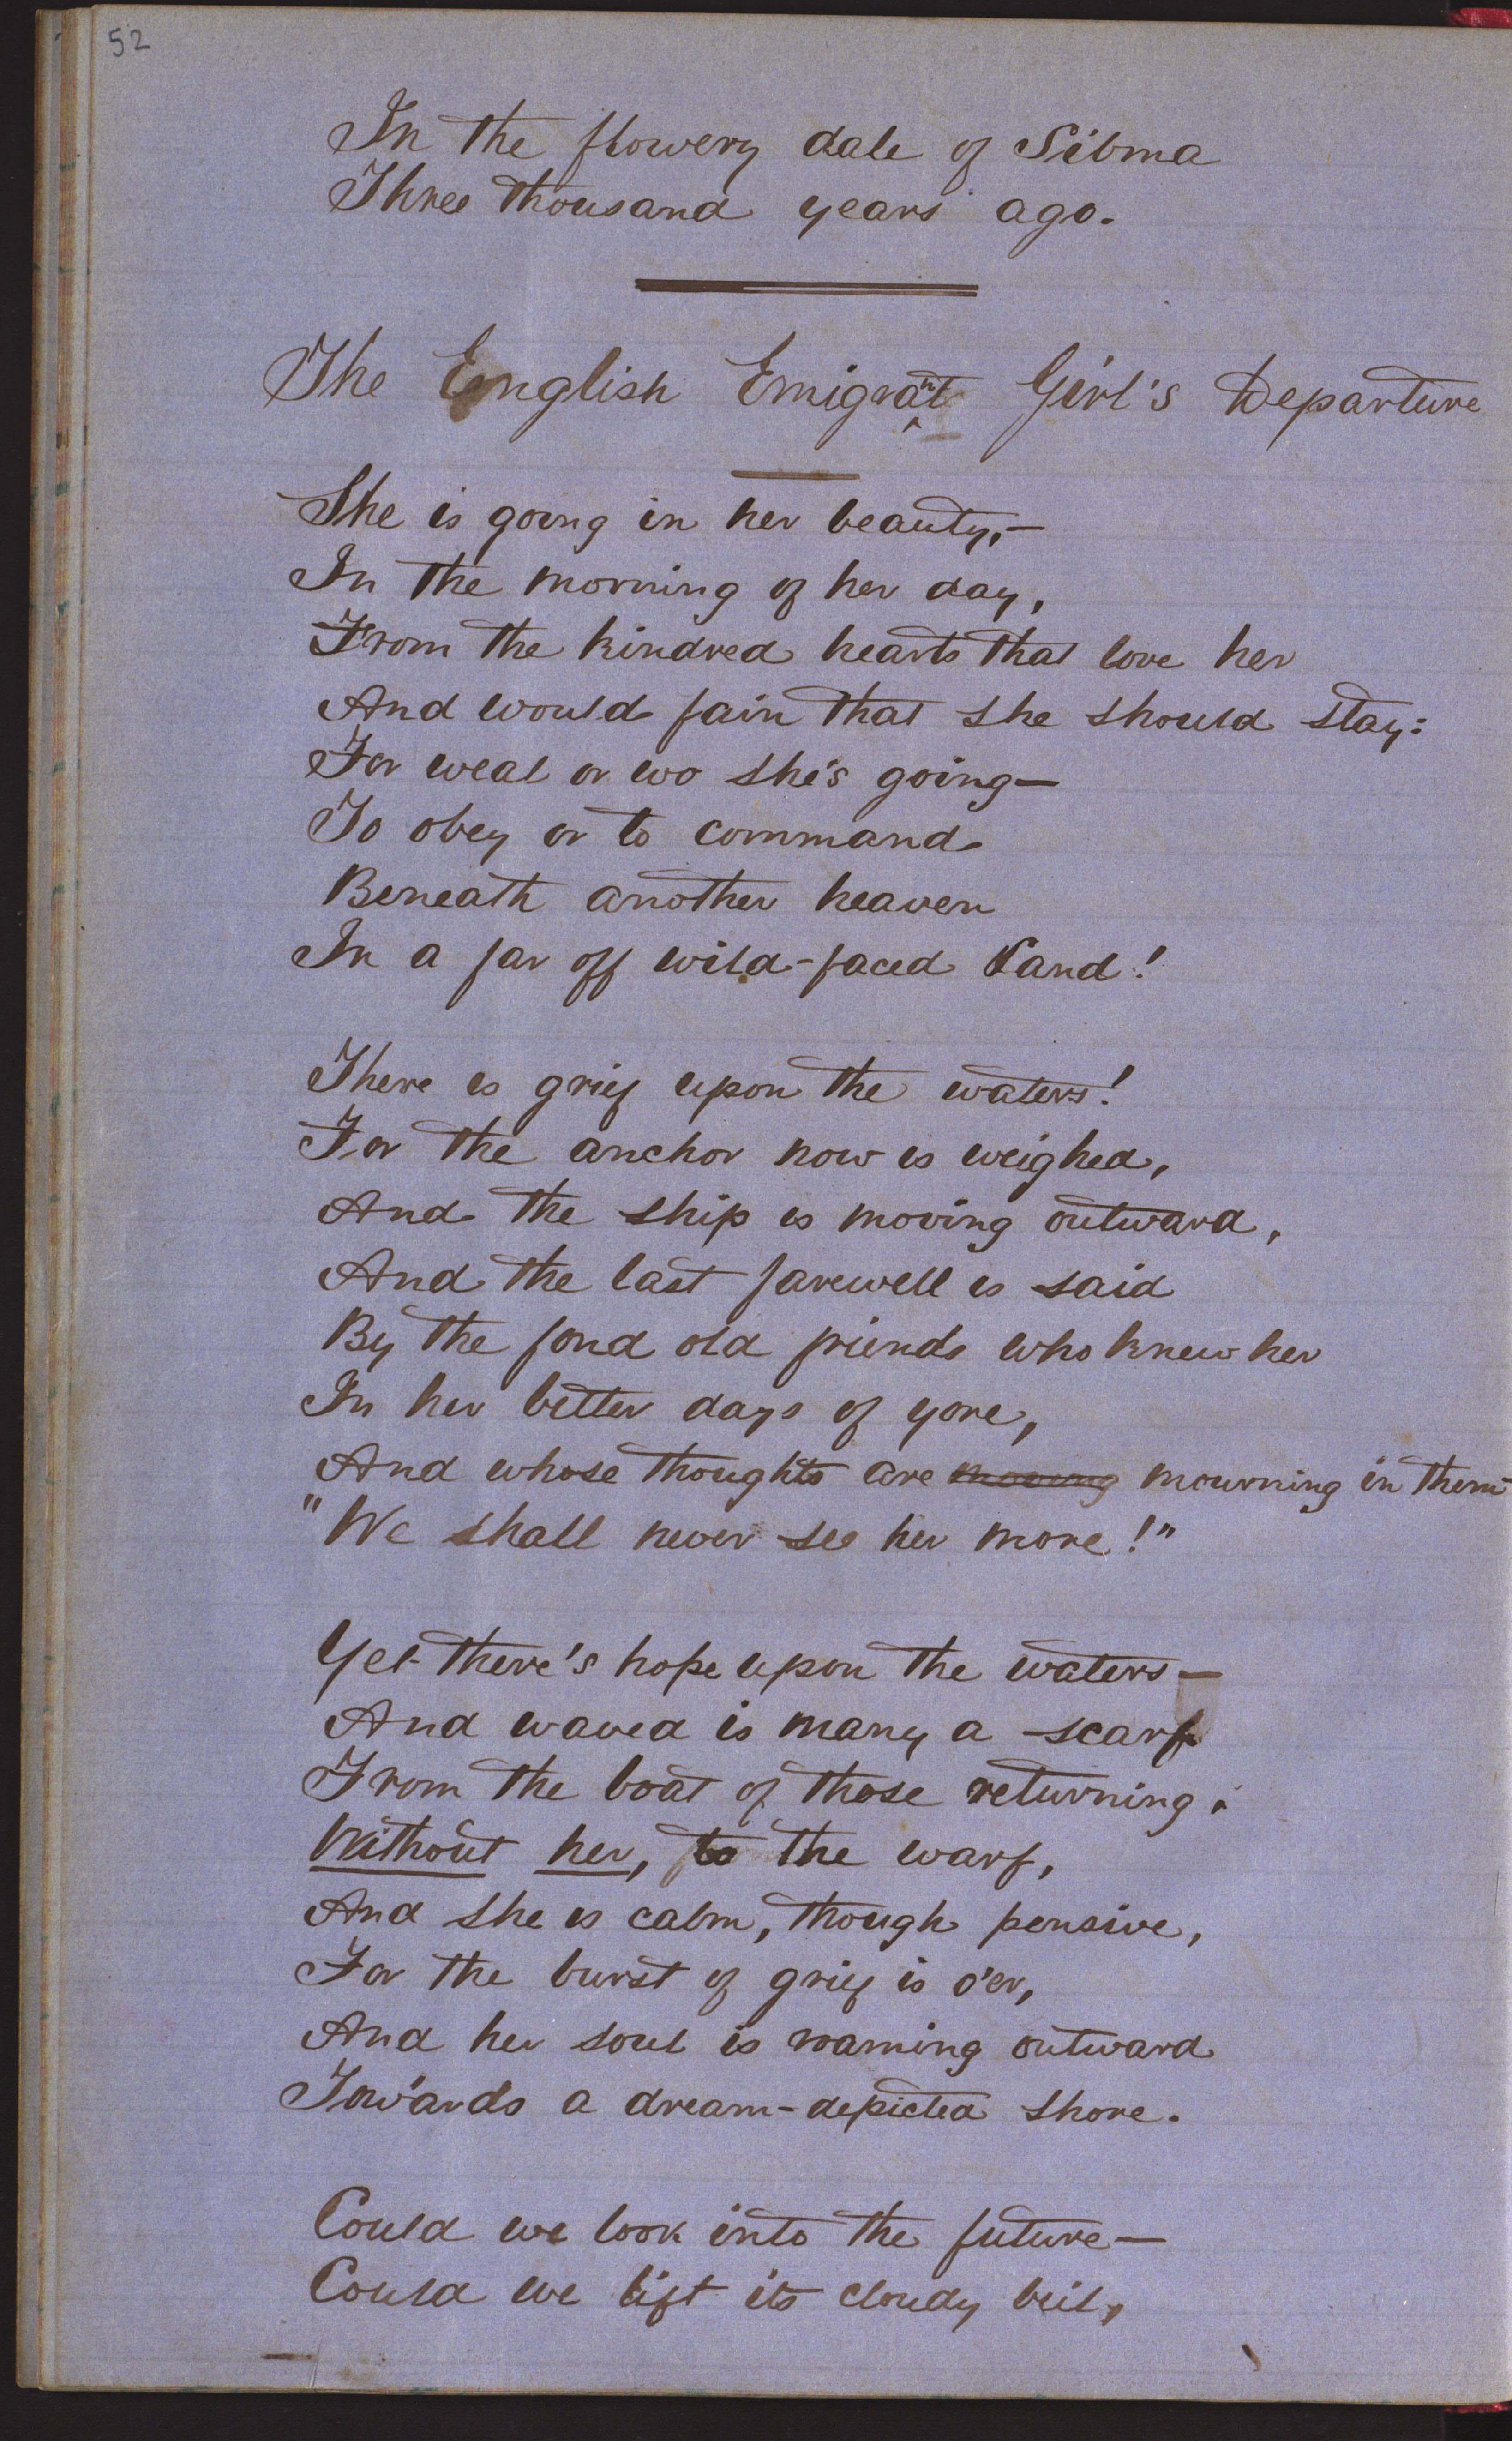 52
In the flowery dale of Sibma
Three thousand years ago.
The English Emigrant Girl's Departure
She is going in her beauty,—
In the morning of her day,
From the kindred hearts that love her
And would fain that she should stay:
For weal or wo she's going—
To obey or to command
Beneath another heaven
In a far off wild-faced Land!
There is grief upon the waters!
For the anchor now is weighed,
And the ship is moving outward,
And the last farewell is said
By the fond old friends who knew her
In her better days of yore,
And whose thoughts are moving mourning in them—
"We shall never see her more!"
Yet there's hope upon the waters—
And waved is many a scarf
From the boat of those returning,
Without her, to the warf,
And she is calm, though pensive,
For the burst of grief is o'er,
And her soul is roaming outward
Towards a dream-depicted shore.
Could we look into the future—
Could we lift its cloudy veil,